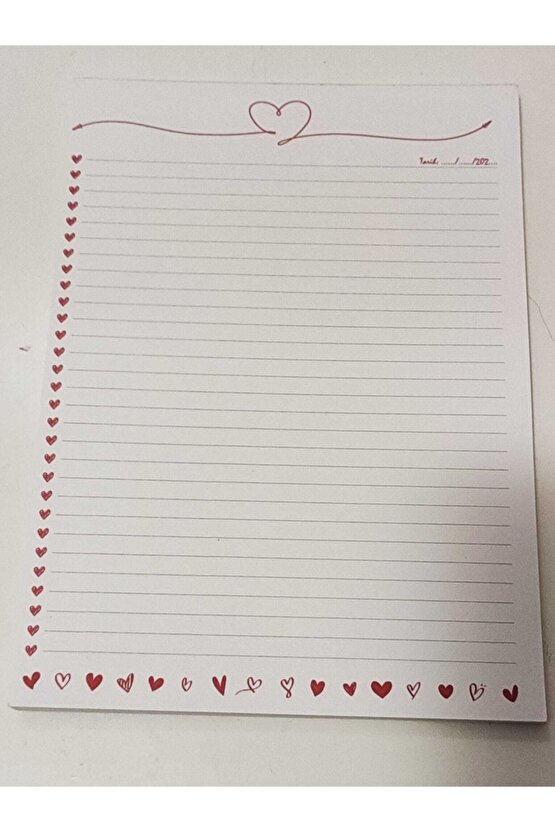 Tarih: ....../ ....../202....